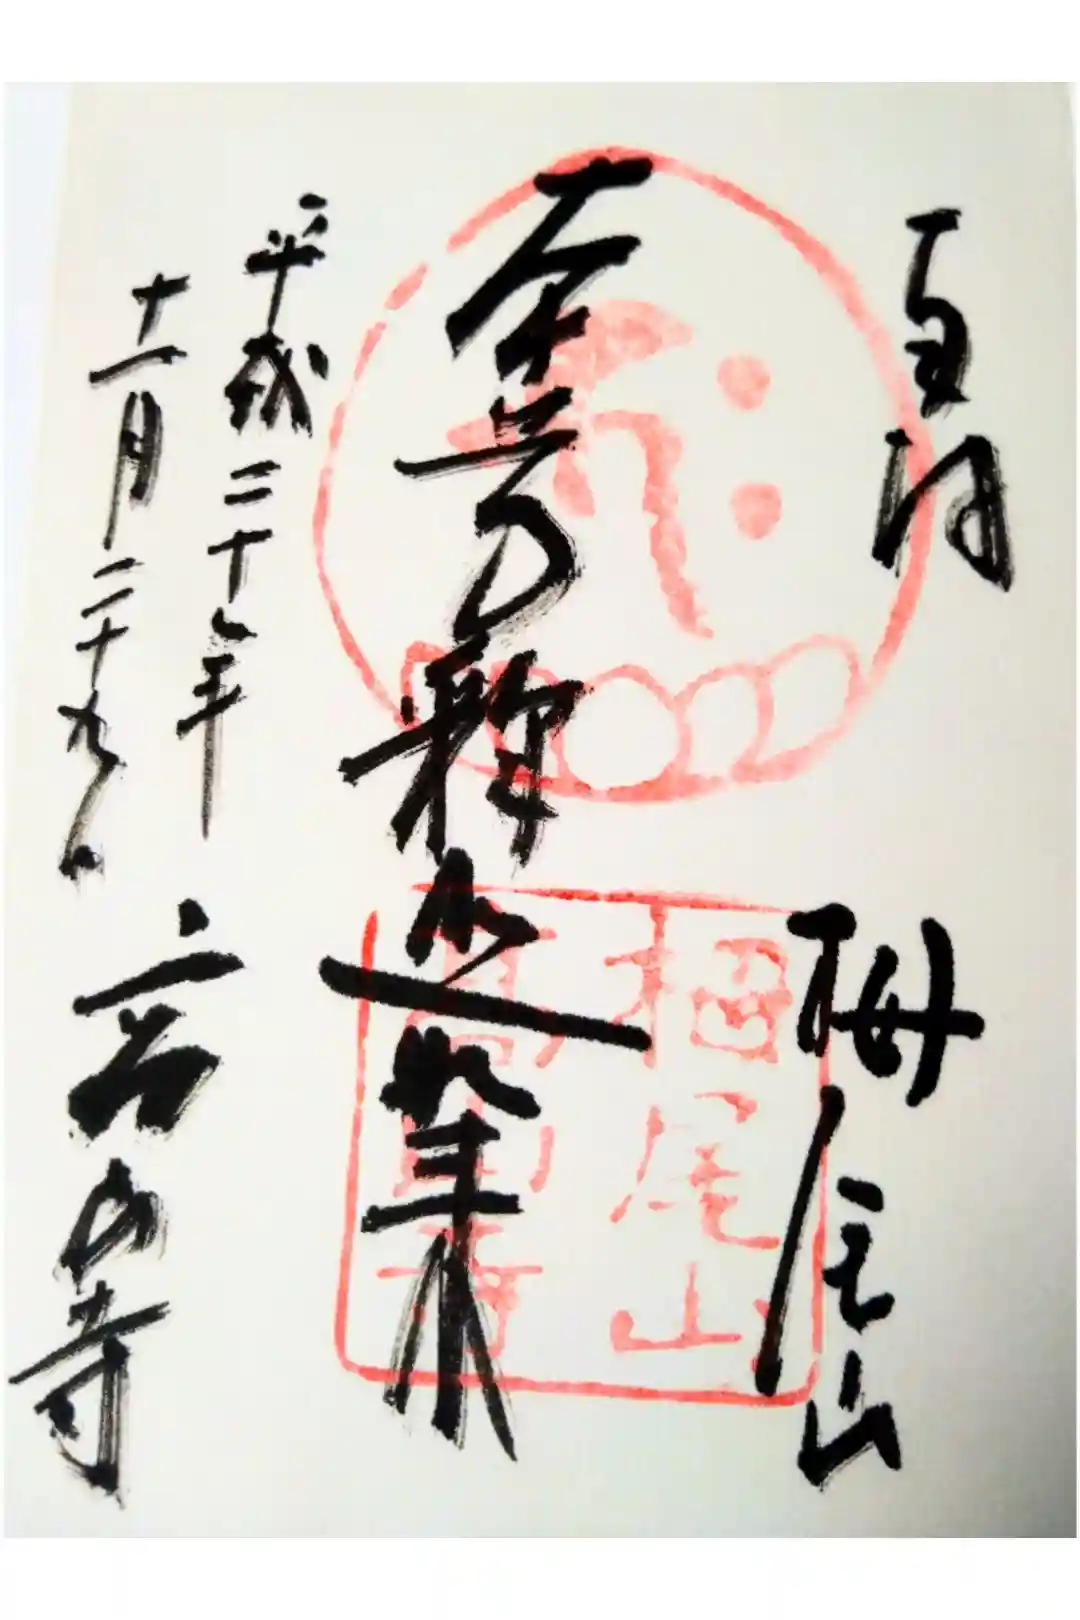 栂尾山
釈迦如来
平成二十七年
十一月二十九日
高山寺
栂尾山
高山寺